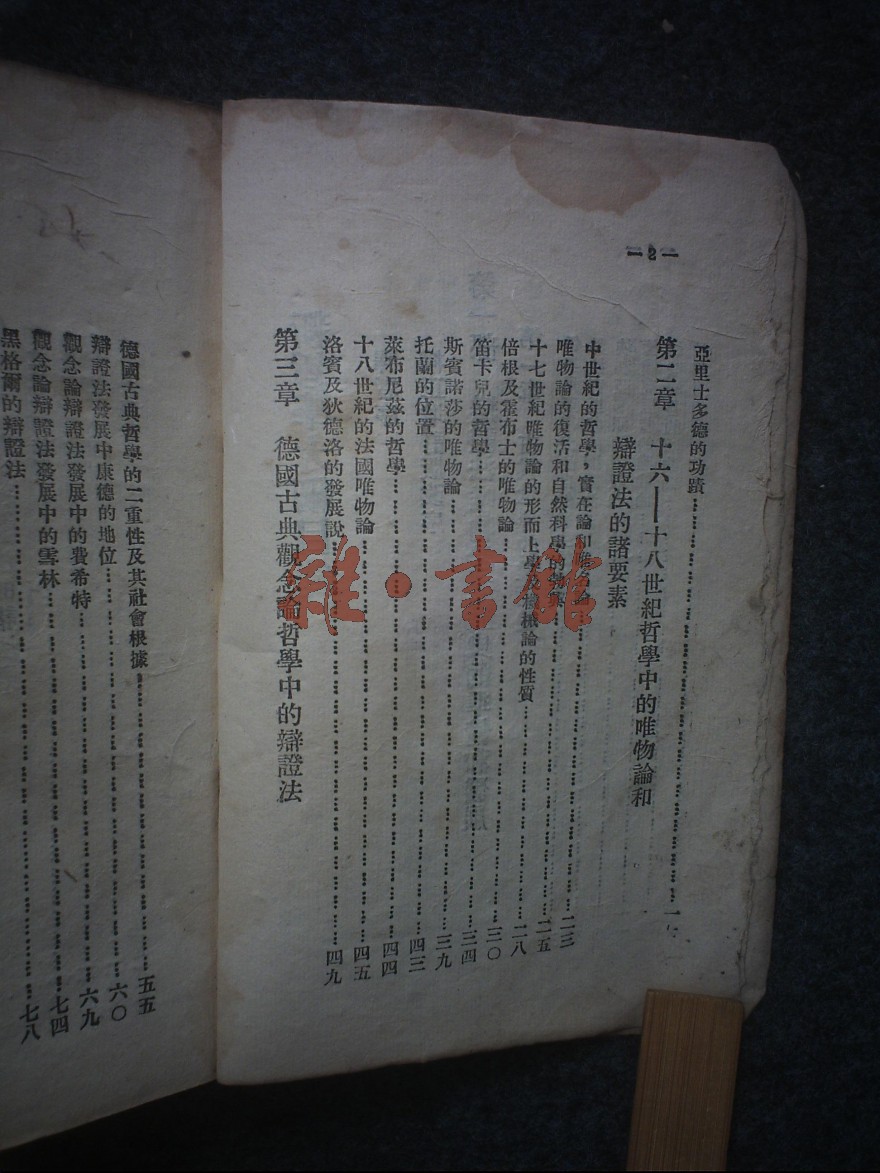 —2—
亞里士多德的功蹟……一
第二章 十六——十八世紀哲學中的唯物論和
辯證法的諸要素
中世紀的哲學，實在論和唯名論……二三
唯物論的復活和自然科學的……二五
十七世紀唯物論的形而上學及機械論的性質……二八
倍根及霍布士的唯物論……三〇
笛卡兒的哲學……三四
斯賓諾莎的唯物論……三九
托蘭的位置……四三
萊布尼茲的哲學……四四
十八世紀的法國唯物論……四五
洛賓及狄德洛的發展說……四九
第三章 德國古典觀念論哲學中的辯證法
德國古典哲學的二重性及其社會根據……五五
辯證法發展中康德的地位……六〇
觀念論辯證法發展中的費希特……六九
觀念論辯證法發展中的雪林……七四
黑格爾的辯證法……七八
雜·書館